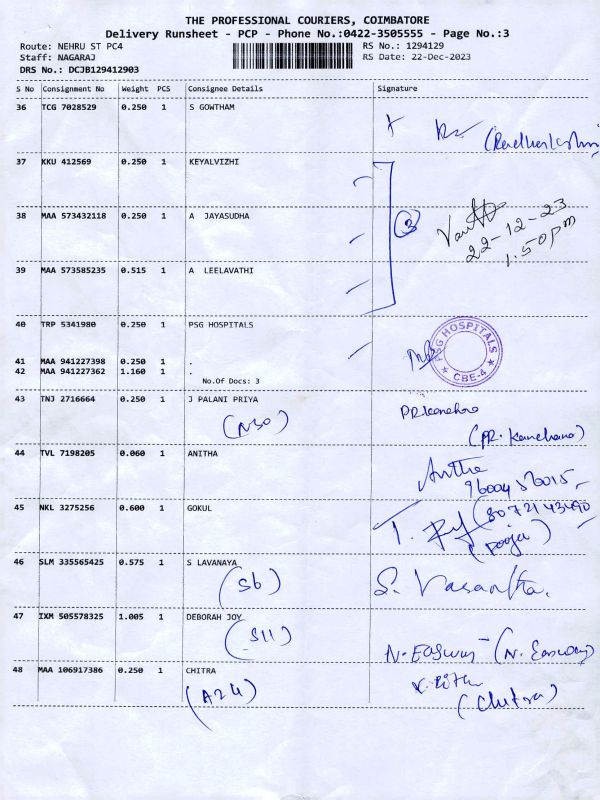 THE PROFESSIONAL COURIERS, COIMBATORE
Delivery Runsheet - PCP - Phone No.:0422-3505555 - Page No.:3
Route: NEHRU ST PC4
RS No.: 1294129
Staff: NAGARAJ
RS Date: 22-Dec-2023
DRS No.: DCJB129412903
S No Consignment No Weight PCS Consignee Details Signature
36 TCG 7028529 0.250 1 S GOWTHAM
37 KKU 412569 0.250 1 KEYALVIZHI
38 MAA 573432118 0.250 1 A JAYASUDHA
3
22-12-23
1.50pm
39 MAA 573585235 0.515 1 A LEELAVATHI
40 TRP 5341980 0.250 1 PSG HOSPITALS
PSG HOSPITALS
CBE-4
41 MAA 941227398 0.250 1 .
42 MAA 941227362 1.160 1 .
No.Of Docs: 3
43 TNJ 2716664 0.250 1 J PALANI PRIYA
(N30)
PR.Kanchana
(PR. Kanchana)
44 TVL 7198205 0.060 1 ANITHA
Anitha
45 NKL 3275256 0.600 1 GOKUL
(Pooja)
46 SLM 335565425 0.575 1 S LAVANAYA
(S6)
S. Vasantha.
47 IXM 505578325 1.005 1 DEBORAH JOY
(S11)
N. Easwari (N. Easwari)
48 MAA 106917386 0.250 1 CHITRA
(A24)
(Chitra)